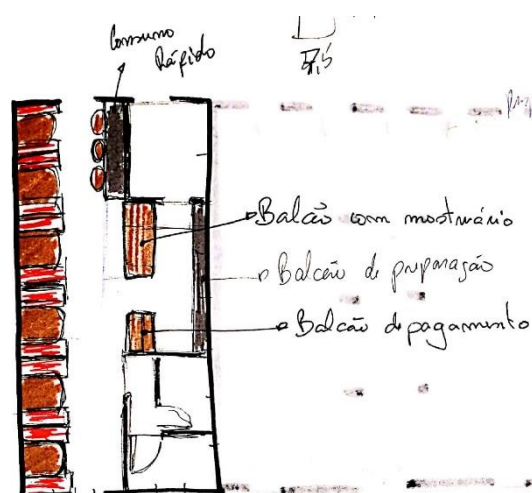 Consumo
Rápido
7,5
Balcão com mostruário
Balcão de preparação
Balcão de pagamento